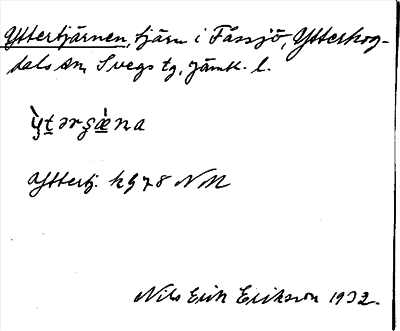 Yttertjärnen, tjärn i Fåssjö, Ytterhog-
dals sn, Svegs tg, Jämtl. l.
ỳt̲ərʂæ̀na
Yttertj. kg 78 NM
Nils Erik Erikson 1932.